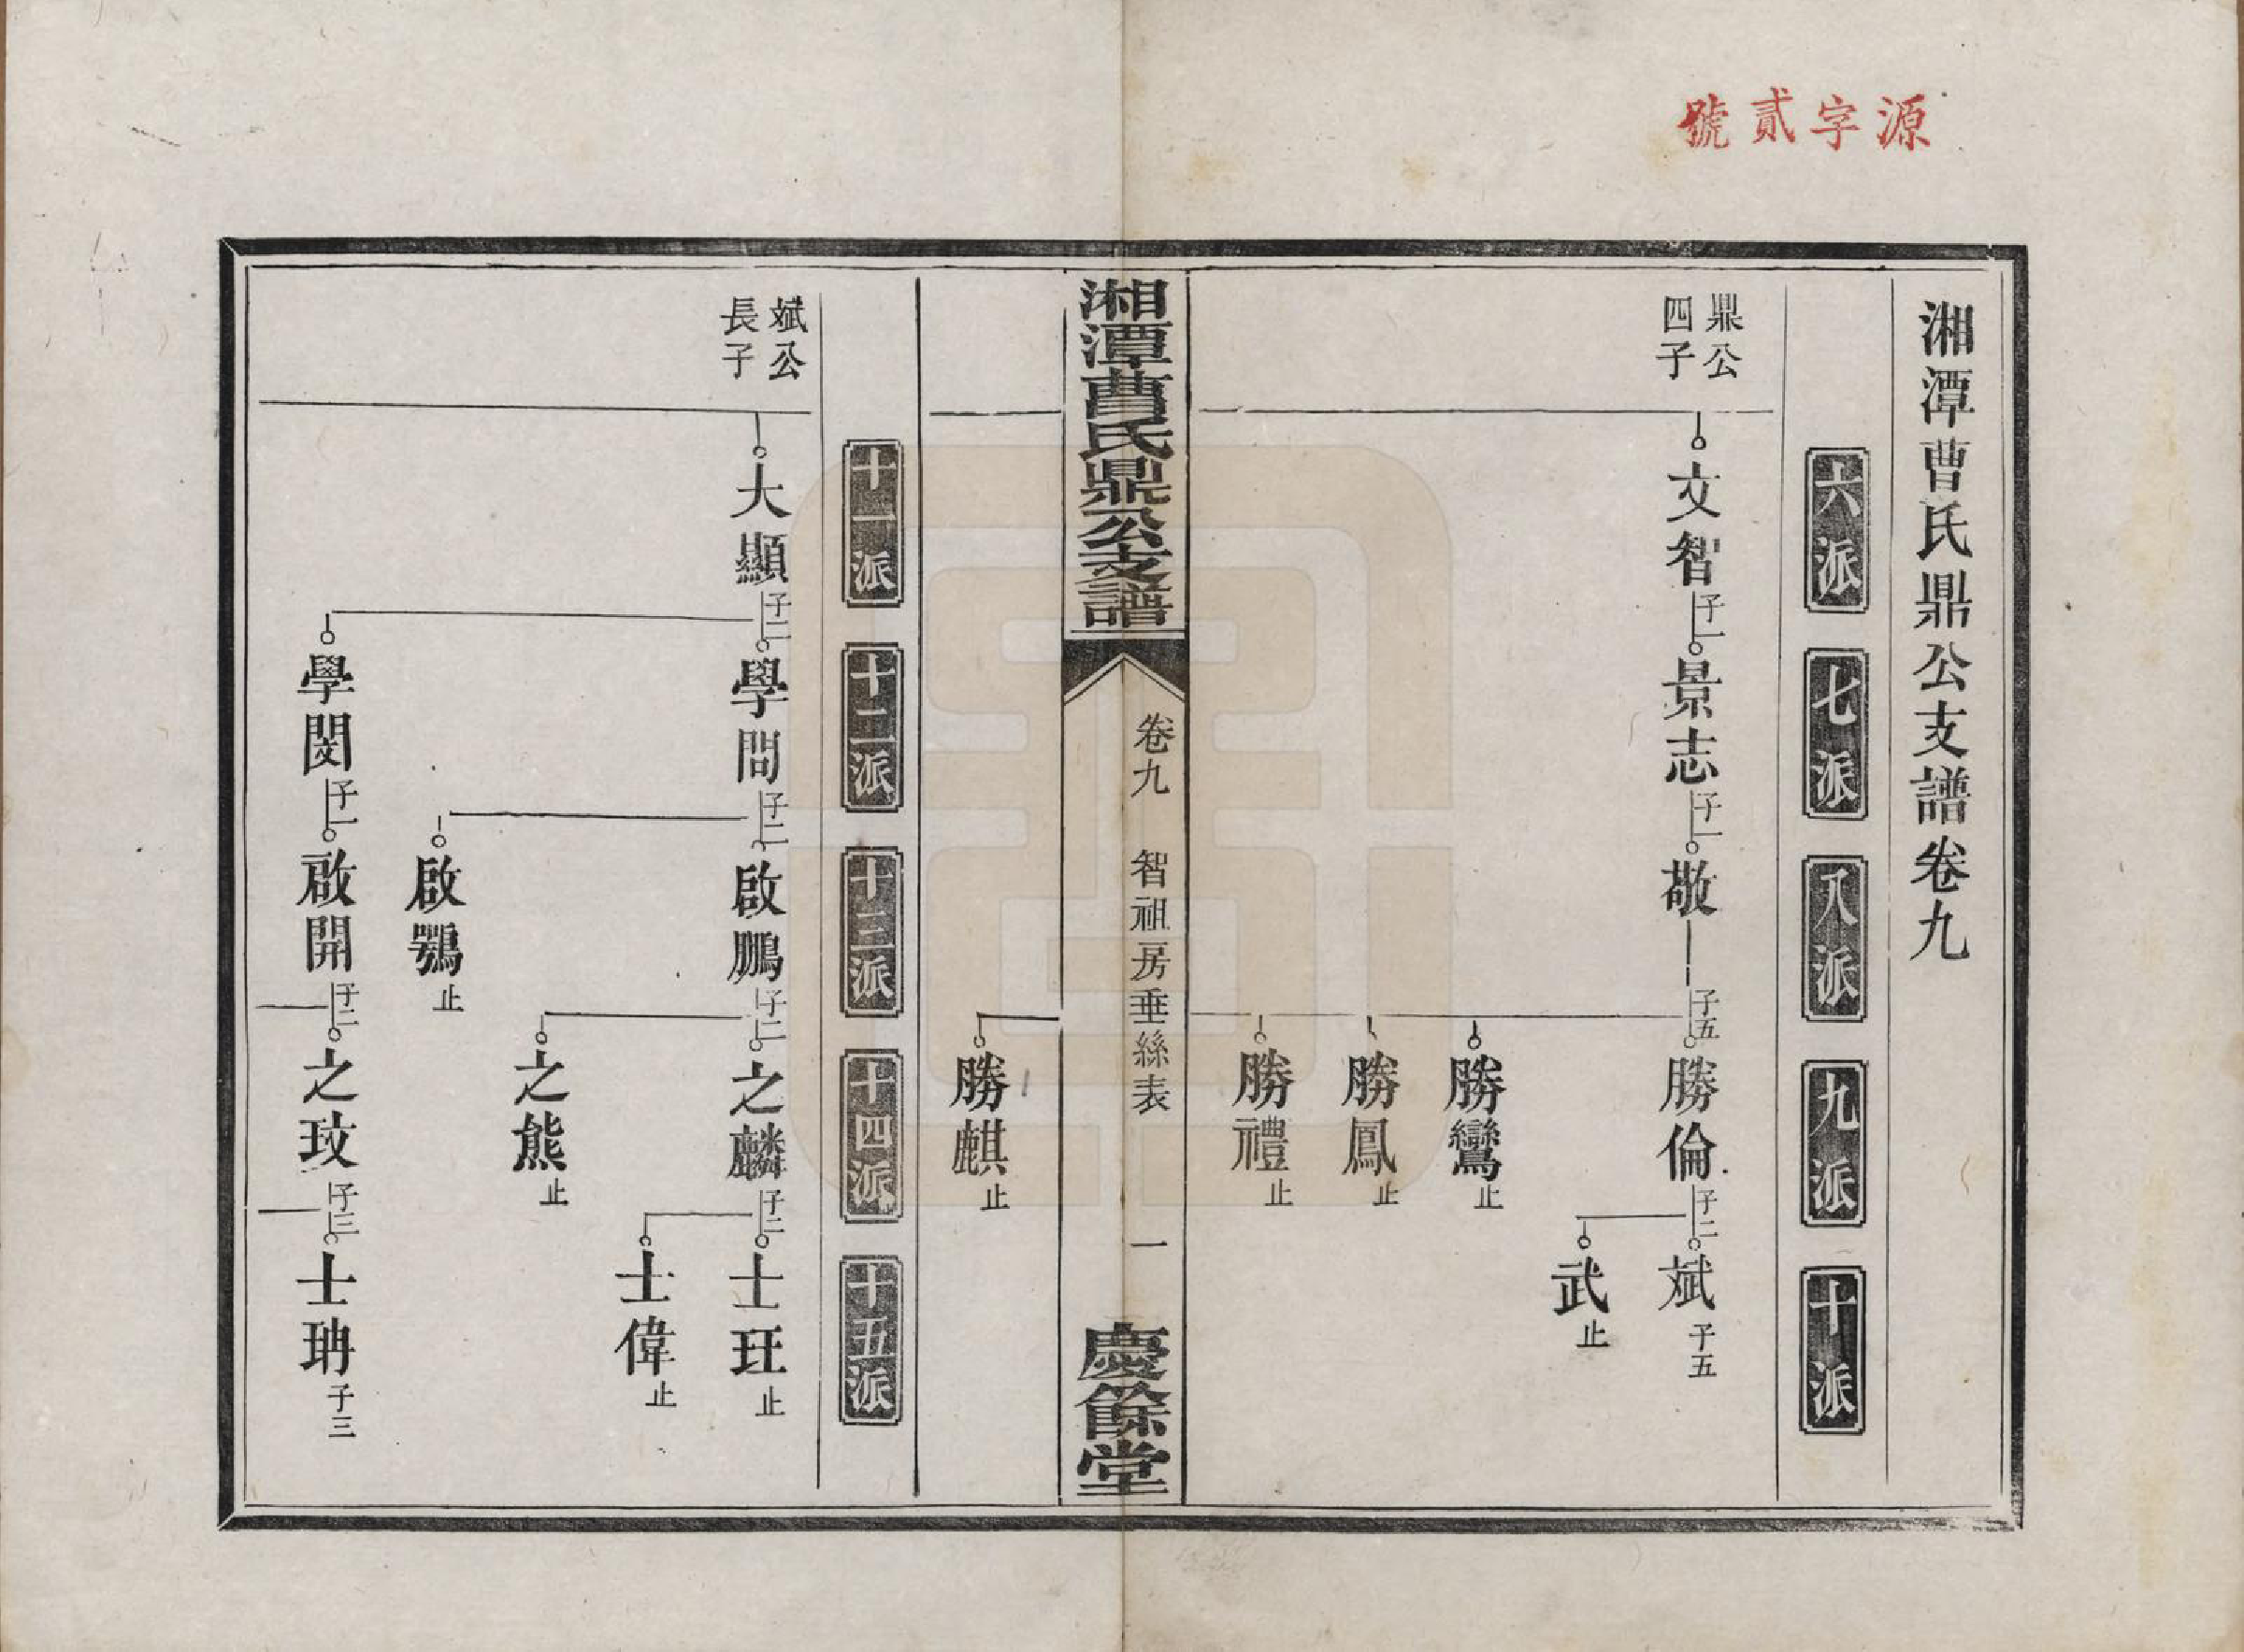 源字貳號
湘潭曹氏鼎公支譜卷九
六派
七派
八派
九派
十派
鼎公
四子
文智
子一
景志
子一
敬一
子五
勝倫
子二
斌
子五
武
止
勝鸞
止
勝鳳
止
勝禮
止
湘潭曹氏鼎公支譜
卷九
智祖房垂絲表
一
慶餘堂
勝麒
止
十一派
十二派
十三派
十四派
十五派
斌公
長子
大顯
子二
學問
子二
啟鵬
子二
之麟
子二
士玨
止
士偉
止
之熊
止
啟鶚
止
學閔
子一
啟開
子二
之玟
子三
士珃
子三